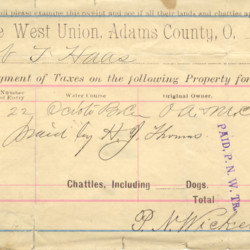 said please examine this receipt and see if all their lands and chattles a
e West Union, Adams County, O.
T Haas
yment of Taxes on the following Property for
Number
of Entry
Water Course
Original Owner.
22 Scioto O
Paid by H. J. Thomas.
Chattles, Including Dogs.
Total
PAID, P. N. W. TR
P. N. Wicke